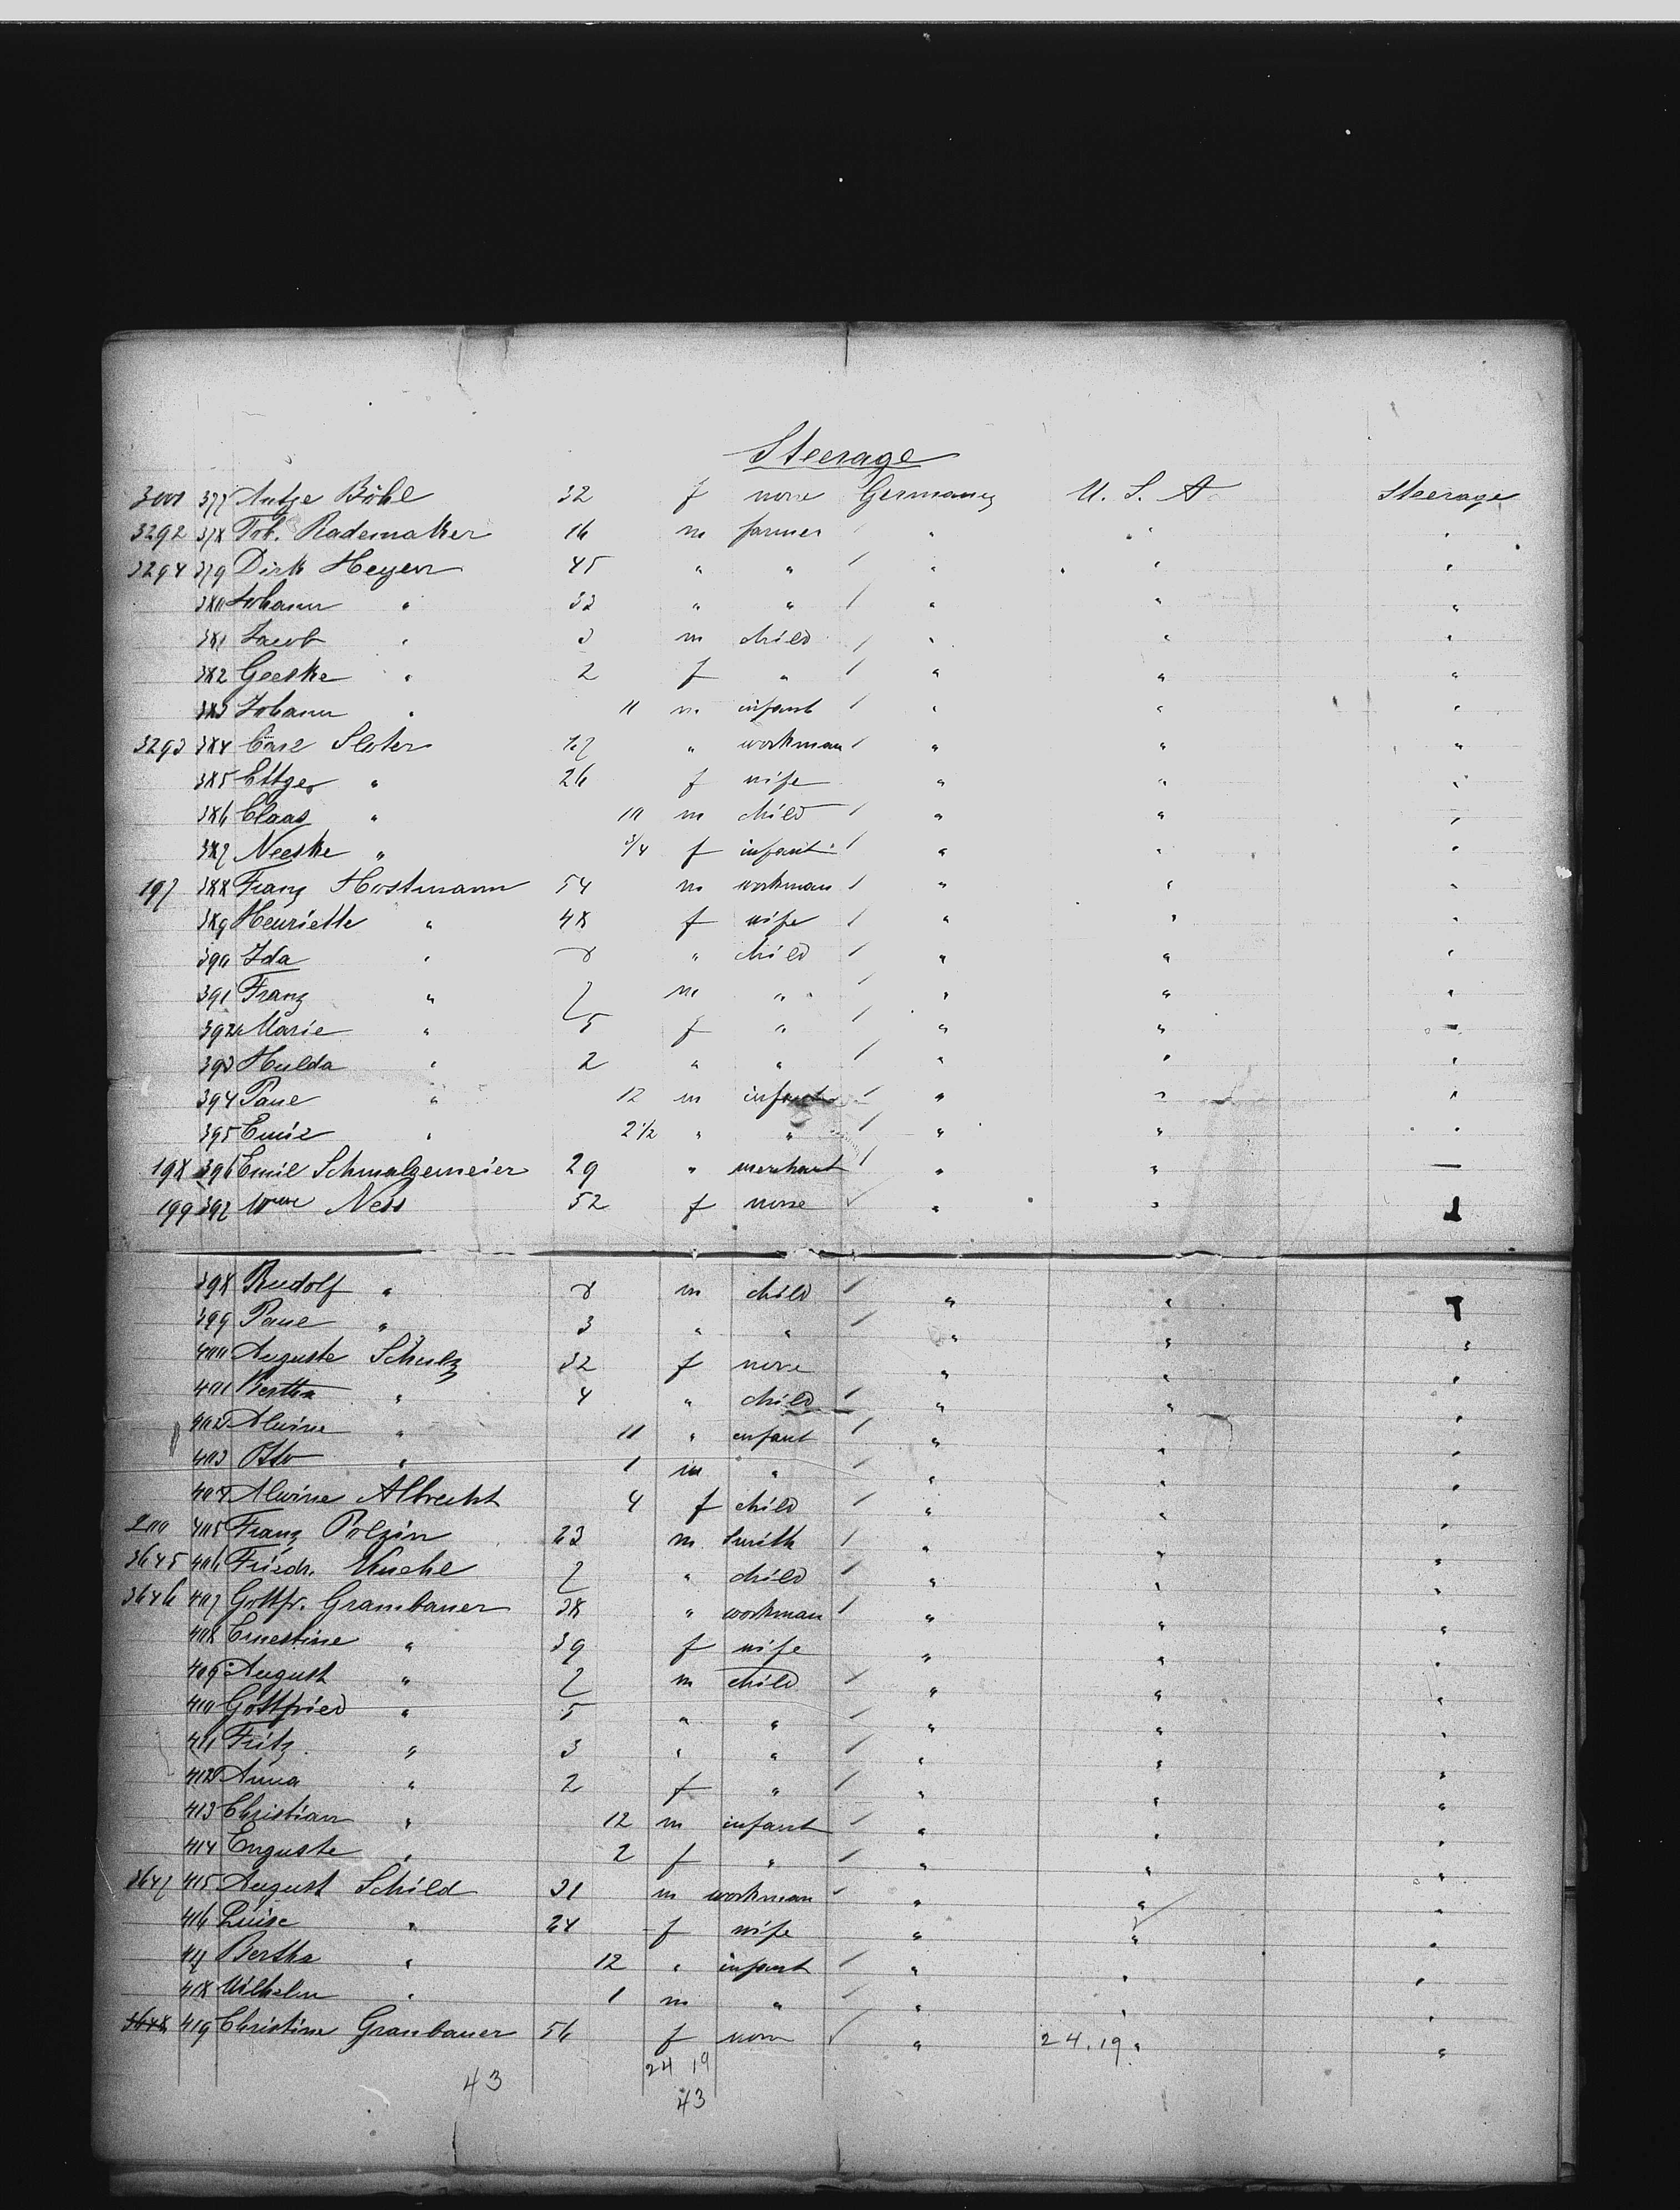 Steerage
377 Antje Böhl 32 f none Germany U. S. A. Steerage
3292 378 Joh. Rademaker 16 m farmer " " "
3294 379 Dirk Heyen 45 " " " " "
380 Johann " 33 " " " " "
381 Jacob " 3 m child " " "
382 Geeske " 2 f " " " "
383 Johann " 11 m infant " " "
3293 384 Carl Sloter " workman " " "
385 Ettje " 26 f wife " " "
386 Claas " 10 m child " " "
387 Neeske " 3/4 f infant " " "
197 388 Franz Horstmann 54 m workman " " "
389 Henriette " 48 f wife " " "
390 Ida " 8 " child " " "
391 Franz " 7 m " " " "
392 Marie " 5 f " " " "
393 Hulda " 2 " " " " "
394 Paul " 12 m infant " " "
395 Emil " 2 1/2 " " " " "
198 396 Emil Schmalzemeier 29 " merchant " "
199 397 Ness 52 f none " "
398 Rudolf " 8 m child " "
399 Paul " 3 " " " " "
400 Auguste Schulz 32 f none " " "
401 Bertha " 4 " child " " "
402 Alwine " 11 " infant " " "
403 Otto " 1 m " " " "
404 Alwine Albrecht 4 f child " " "
200 405 Franz Polzin 23 m Smith " " "
3645 406 Friedr. Kuehl 7 " child " " "
3646 407 Gottfr. Grambauer 38 " workman " " "
408 Ernestine " 39 f wife " " "
409 August " 7 m child " " "
410 Gottfried " 5 " " " " "
411 Fritz " 3 " " " " "
412 Anna " 2 f " " " "
413 Christian " 12 m infant " " "
414 Enguste " 2 f " " " "
3647 415 August Schild 31 m workman " " "
416 Luise " 24 f wife " " "
417 Bertha " 12 " infant " " "
418 Wilhelm " 1 m " " " "
3648 419 Christine Granbauer 56 f none " 24.19 " "
24 19
43 43